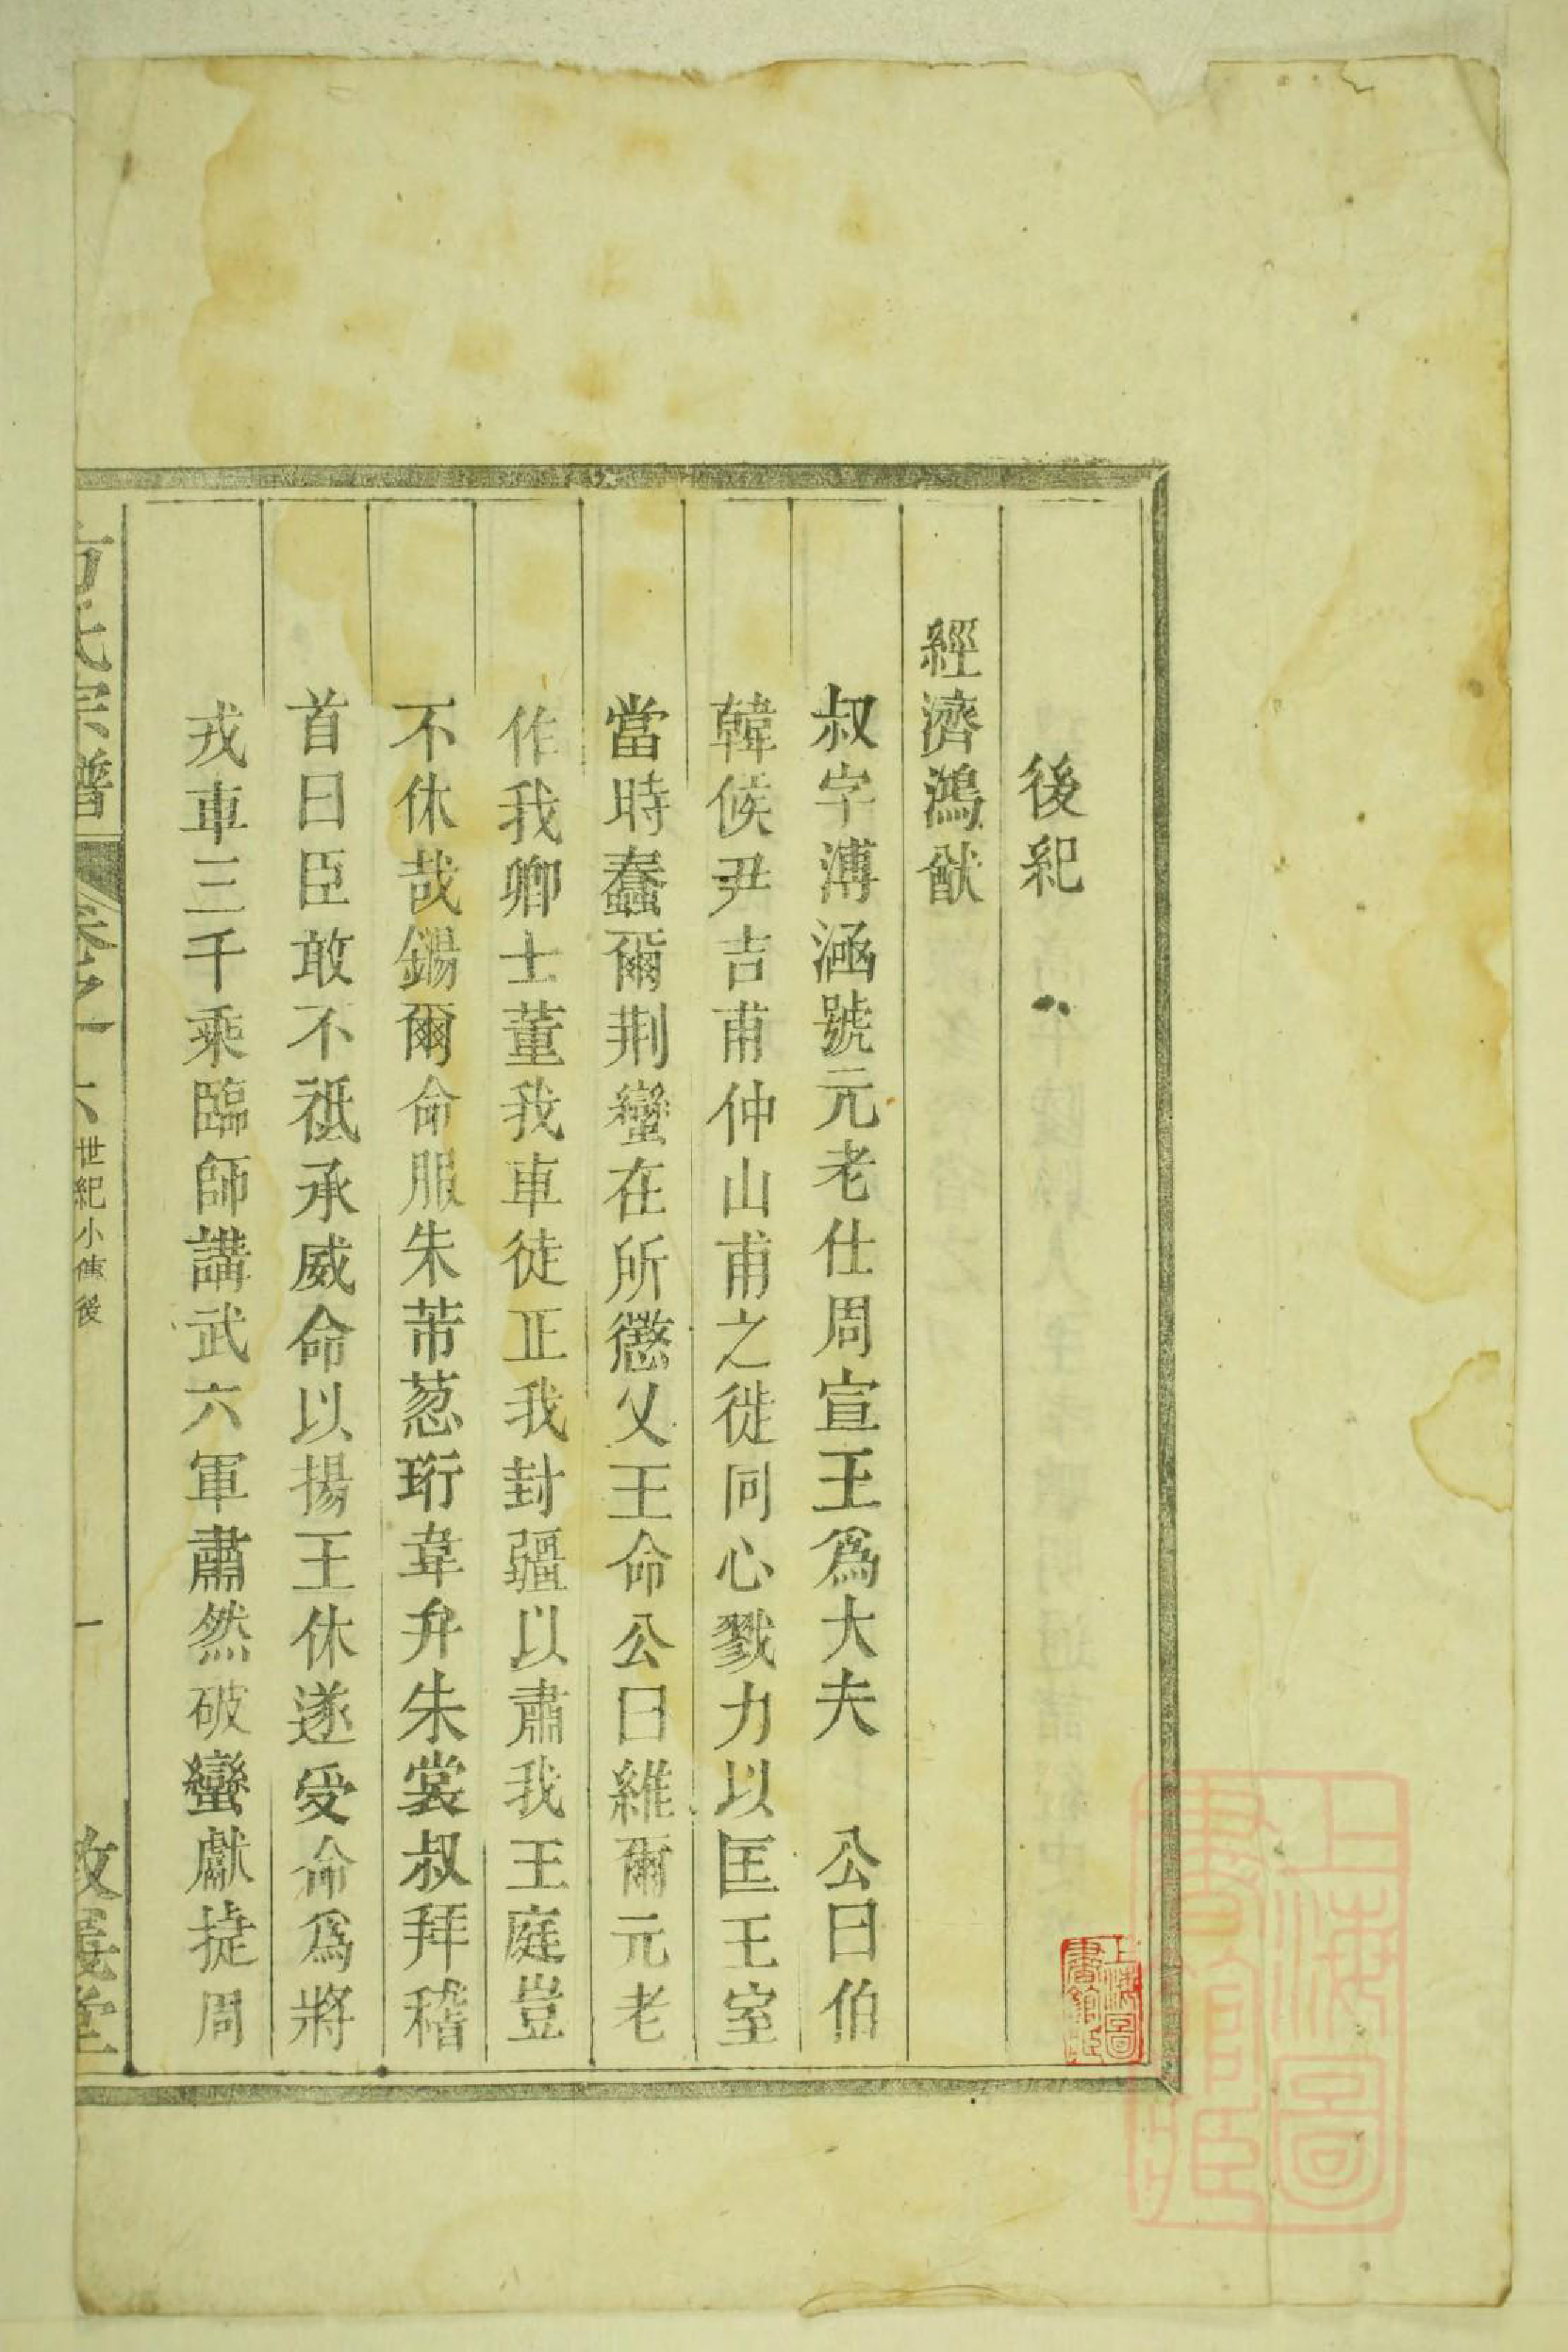 後紀
經濟鴻猷
叔字溥涵號元老仕周宣王爲大夫　公曰伯
韓侯尹吉甫仲山甫之徙同心戮力以匡王室
當時蠢爾荆蠻在所懲乂王命公曰維爾元老
作我卿士董我車徒正我封疆以肅我王庭豈
不休哉錫爾命服朱芾葱珩韋弁朱裳叔拜稽
首曰臣敢不祗承威命以揚王休遂受命爲將
戎車三千乘臨師講武六軍肅然破蠻獻㨗周
方氏宗譜
卷之一
世紀小傳後
一
堂
上海圖書館藏
上海圖書館藏